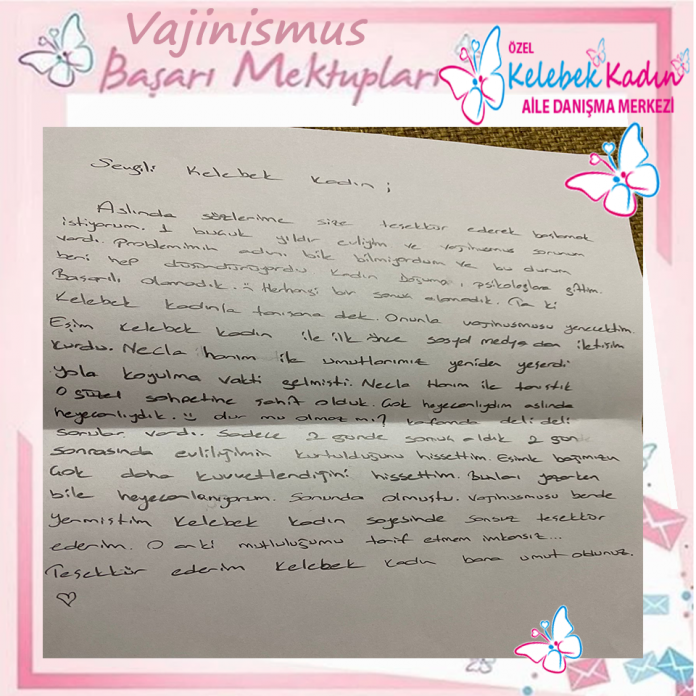 Vajinismus
Başarı Mektupları
ÖZEL
Kelebek Kadın
AİLE DANIŞMA MERKEZİ
Sevgili Kelebek Kadın;
Aslında sözlerime size teşekkür ederek başlamak
istiyorum. 1 buçuk yıldır evliyim ve vajinusmus sorunum
vardı. Problemimin adını bile bilmiyordum ve bu durum
beni hep düşündürüyordu Kadın Doğuma, psikologlara gittim.
Başarılı olamadık. Herhangi bir sonuç alamadık. Ta ki
Kelebek Kadınla tanışana dek. Onunla vajinusmusu yenecektim.
Eşim Kelebek Kadın ile ilk önce sosyal medyadan iletişim
kurdu. Necla hanım ile umutlarımız yeniden yeşerdi
yola koyulma vakti gelmişti. Necla Hanım ile tanıştık
O güzel sohbetine şahit olduk. Çok heyecanlıydım aslında
heyecanlıydık. :) olur mu olmaz mı? kafamda deli deli
sorular vardı. Sadece 2 günde sonuç aldık 2 gün
sonrasında evliliğimin kurtulduğunu hissettim. Eşimle bağımızın
Çok daha kuvvetlendiğini hissettim. Bunları yazarken
bile heyecanlanıyorum. Sonunda olmuştu. Vajinusmusu bende
yenmiştim Kelebek Kadın sayesinde sonsuz teşekkür
ederim. O anki mutluluğumu tarif etmem imkansız...
Teşekkür ederim Kelebek Kadın bana umut oldunuz.
♡